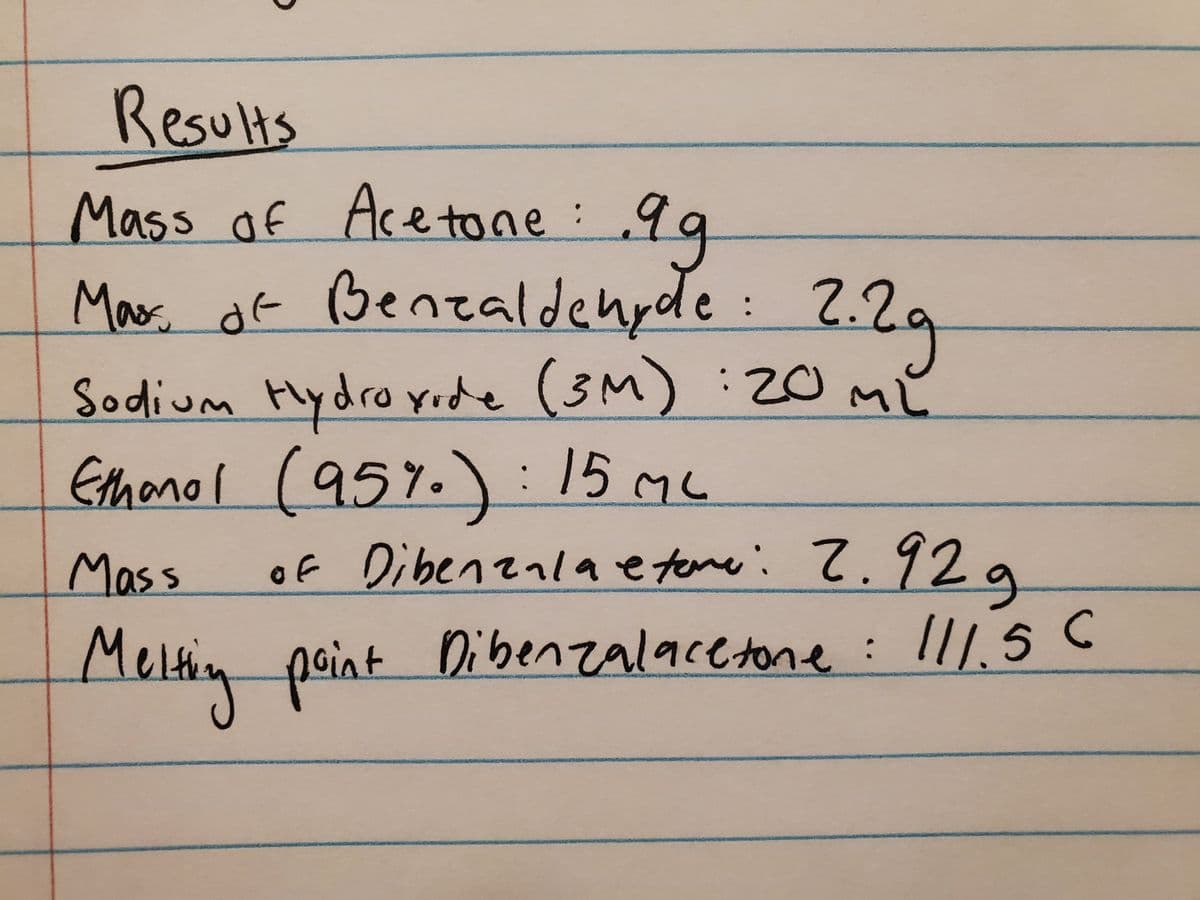 Results
Mass of Acetone : .9g
Mass of Benzaldehyde : 2.2g
Sodium Hydroxide (3M) : 20 mL
Ethanol (95%) : 15 mL
Mass of Dibenzalaetone : 2.92g
Melting point Dibenzalacetone : 111.5 C